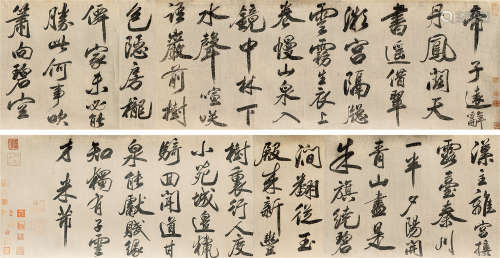 帝子遠辭
丹鳳闕天
書遥借翠
微宮隔窓
雲霧生衣上
卷幔山泉入
鏡中林下
水聲喧咲
語巖前樹
色隱房櫳
僊家未必能
勝此何事吹
簫向碧空
漢主離宮接
露臺秦川
一半夕陽開
青山盡是
朱旗繞碧
澗翻從玉
殿來新豐
樹裏行人度
小苑城邊獵
騎回聞道甘
泉能獻賦縣
知獨有子雲
才 米芾